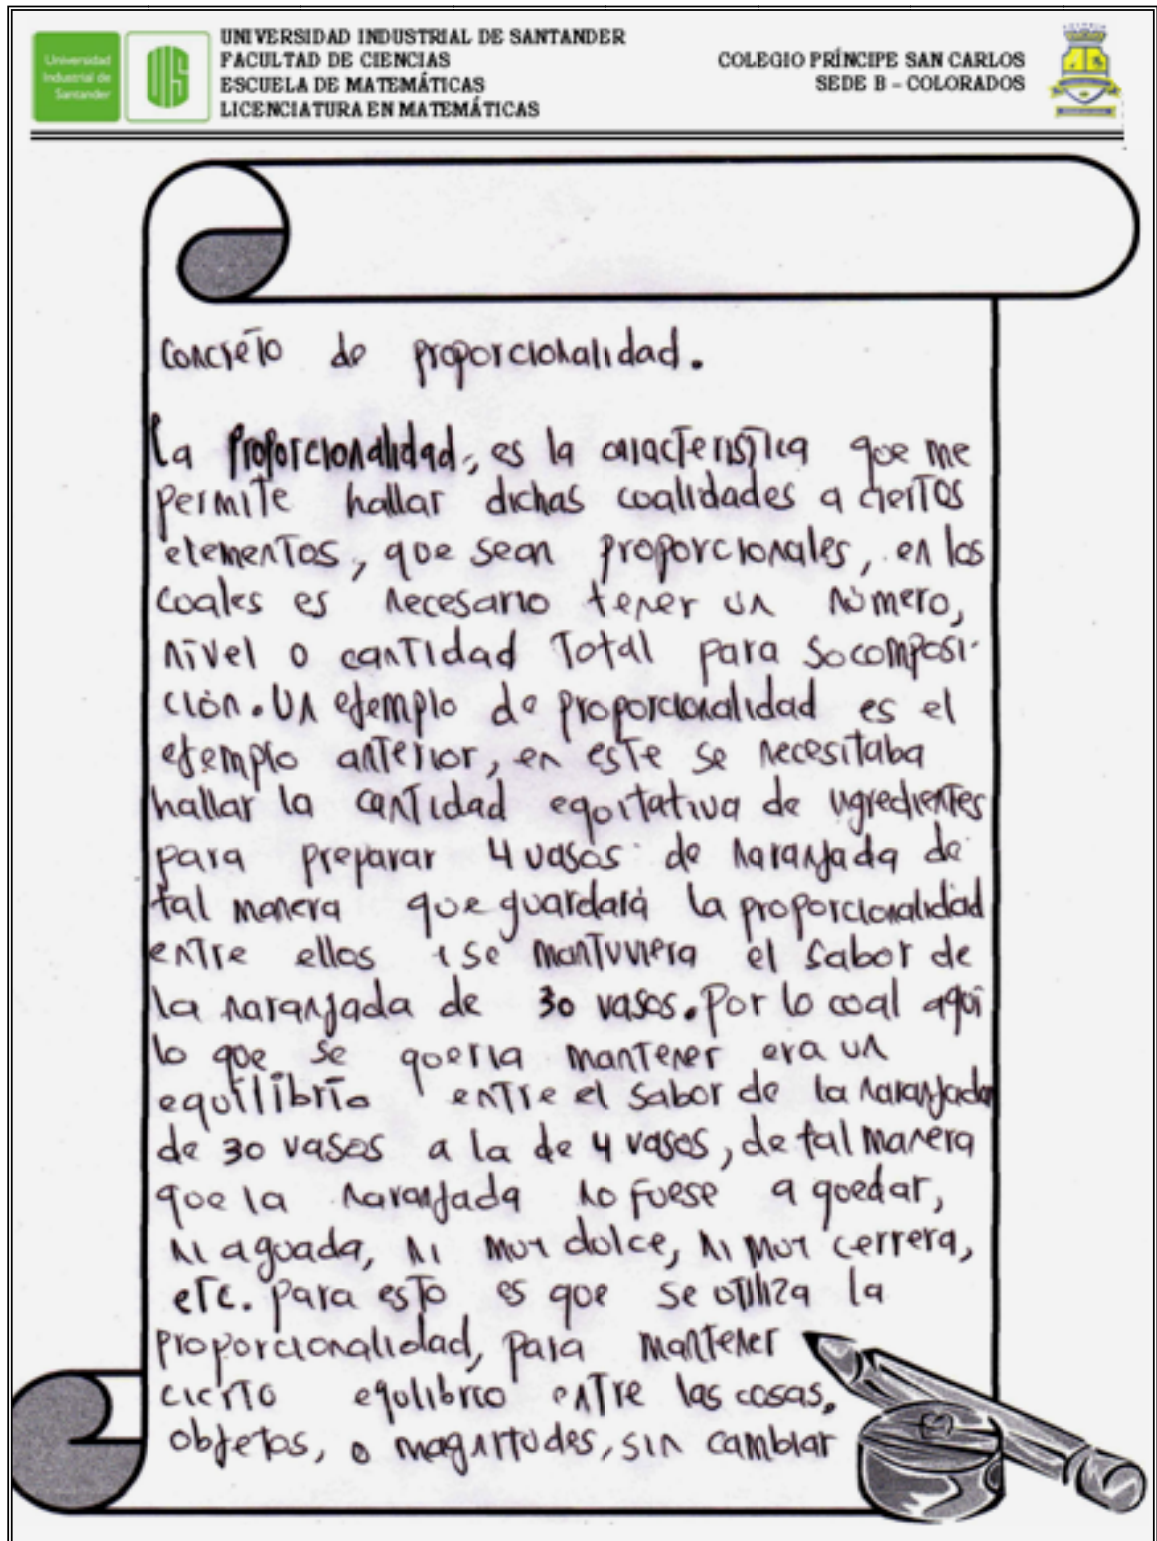 Universidad
Industrial de
Santander
UIS
UNIVERSIDAD INDUSTRIAL DE SANTANDER
FACULTAD DE CIENCIAS
ESCUELA DE MATEMÁTICAS
LICENCIATURA EN MATEMÁTICAS
COLEGIO PRÍNCIPE SAN CARLOS
SEDE B – COLORADOS
Concreto de proporcionalidad.
La proporcionalidad, es la caracteristica que me
permite hallar dichas coalidades a ciertos
elementos, que sean proporcionales, en los
coales es necesario tener un número,
nivel o cantidad Total para socomposi-
ción. Un ejemplo de proporcionalidad es el
ejemplo anterior, en este se necesitaba
hallar la cantidad eqoitativa de ingredientes
para preparar 4 vasos de naranjada de
tal manera que guardará la proporcionalidad
entre ellos i se mantuviera el sabor de
la naranjada de 30 vasos. Por lo coal aqoi
lo que se qoeria mantener era un
equilibrio entre el sabor de la naranjada
de 30 vasos a la de 4 vasos, de tal manera
qoe la naranjada no fuese a qoedar,
ni aguada, ni moy dolce, ni moy cerrera,
etc. para esto es qoe se otiliza la
proporcionalidad, para mantener
cierto eqolibrio entre las cosas,
objetos, o magnitodes, sin cambiar